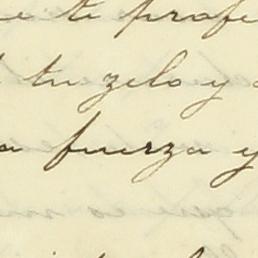 te profe
tu zelo y
fuerza y